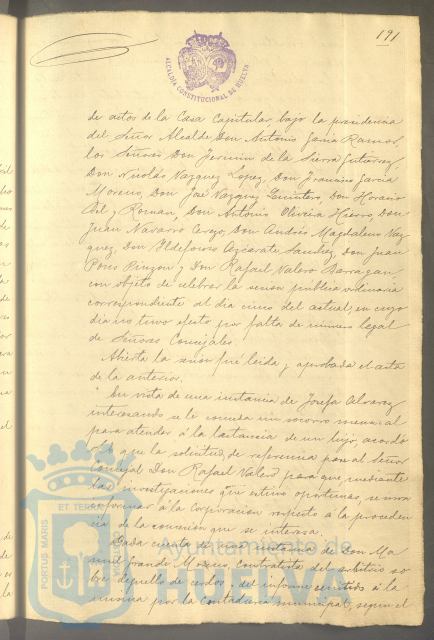 191
ALCALDÍA CONSTITUCIONAL DE HUELVA
de actos de la Casa Capitular, bajo la presidencia
del Señor Alcalde Don Antonio García Ramos,
los Señores Don Jermin de la Sierra Gutierrez,
Don Nicolás Vazquez Lopez, Don Francisco García
Moreno, Don José Vazquez Quintero, Don Horacio
Bel y Roman, Don Antonio Oliveira Hierro, Don
Juan Navarro Cerezo, Don Andrés Magdaleno Vaz
quez, Don Ildefonso Azcárate Sanchez, Don Juan
Pons Pinzon y Don Rafael Valero Barragan,
con objeto de celebrar la sesion publica ordinaria
correspondiente al dia cinco del actual, en cuyo
dia no tuvo efecto por falta de numero legal
de Señores Concejales.
Abierta la sesion fué leida y aprobada el acta
de la anterior.
En vista de una instancia de Josefa Alvarez
interesando se le conceda un socorro mensual
para atender á la lactancia de un hijo, acordó
que la solicitud de referencia pase al Señor
Concejal Don Rafael Valero para que, mediante
las investigaciones que estime oportunas, se sirva
informar á la Corporacion respecto á la proceden
cia de la concesion que se interesa.
Dada cuenta de una instancia de Don Ma
nuel Moreno, Contratista del arbitrio so
bre deguello de cerdos y del informe emitido á la
misma por la Contaduria municipal, segun el
PORTUS MARIS
ET TERRAE
Ayuntamiento de
HUELVA